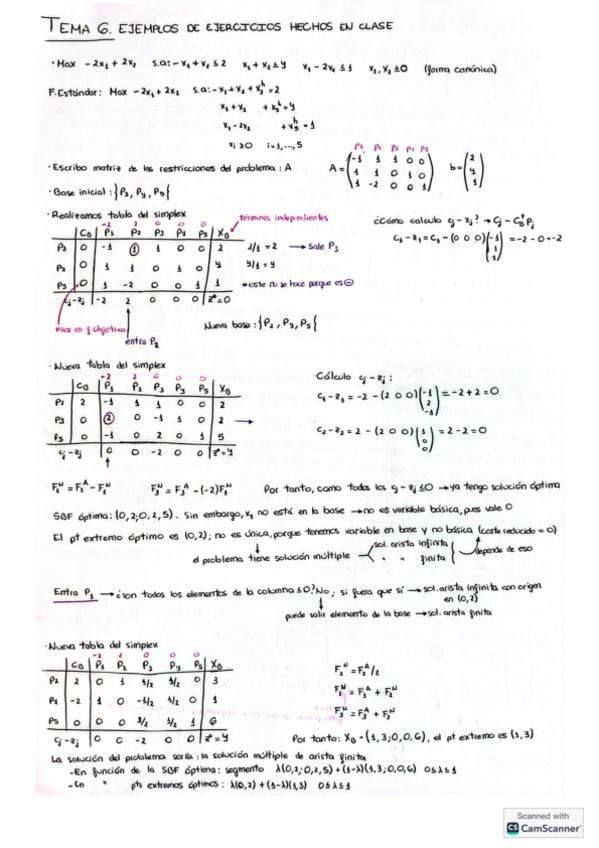 TEMA 6. EJEMPLOS DE EJERCICIOS HECHOS EN CLASE
· Max -2x₁ + 2x₂ s.a: -x₁ + x₂ ≤ 2 x₁ + x₂ ≤ 4 x₁ - 2x₂ ≤ 1 x₁, x₂ ≥ 0 (forma canónica)
F. Estándar: Max -2x₁ + 2x₂ s.a: -x₁ + x₂ + x₃ʰ = 2
x₁ + x₂ + x₄ʰ = 4
x₁ - 2x₂ + x₅ʰ = 1
xᵢ ≥ 0 i = 1,...,5
· Escribo matriz de las restricciones del problema: A
P₁ P₂ P₃ P₄ P₅
A = ( -1 1 1 0 0
1 1 0 1 0
1 -2 0 0 1 )
b = ( 2
4
1 )
· Base inicial: {P₃, P₄, P₅}
· Realizamos tabla del simplex
términos independientes
-2 2 0 0 0
C_B P₁ P₂ P₃ P₄ P₅ X_B
P₃ 0 -1 1 1 0 0 2 2/1 = 2 → sale P₃
0 1 1 0 1 0 4 4/1 = 4
P₅ 0 1 -2 0 0 1 1 → este no se hace porque es ⊖
cⱼ - zⱼ -2 2 0 0 0 z* = 0
entra P₂
Nueva base: {P₂, P₄, P₅}
¿Cómo calculo cⱼ - zⱼ? → cⱼ - C_Bᵗ Pⱼ
c₁ - z₁ = c₁ - (0 0 0) ( -1
1
1 ) = -2 - 0 = -2
· Nueva tabla del simplex
-2 2 0 0 0
C_B P₁ P₂ P₃ P₄ P₅ X_B
P₂ 2 -1 1 1 0 0 2
P₄ 0 2 0 -1 1 0 2 →
P₅ 0 -1 0 2 0 1 5
cⱼ - zⱼ 0 0 -2 0 0 z* = 4
Cálculo cⱼ - zⱼ:
c₁ - z₁ = -2 - (2 0 0) ( -1
2
-1 ) = -2 + 2 = 0
c₂ - z₂ = 2 - (2 0 0) ( 1
0
0 ) = 2 - 2 = 0
Por tanto, como todos los cⱼ - zⱼ ≤ 0 → ya tengo solución óptima
SBF óptima: (0,2;0,2,5). Sin embargo, x₁ no está en la base → no es variable básica, pues vale 0
El pt extremo óptimo es (0,2); no es única, porque tenemos variable en base y no básica (coste reducido = 0)
el problema tiene solución múltiple
sol. arista infinita
" " finita
depende de eso
Entra P₁ → ¿son todos los elementos de la columna ≤ 0? No; si fuera que sí → sol. arista infinita con origen
en (0,2)
puede salir elemento de la base → sol. arista finita
· Nueva tabla del simplex
-2 2 0 0 0
C_B P₁ P₂ P₃ P₄ P₅ X_B
P₂ 2 0 1 1/2 1/2 0 3
-2 1 0 -1/2 1/2 0 1
P₅ 0 0 0 3/2 1/2 1 6
cⱼ - zⱼ 0 0 -2 0 0 z* = 4
Por tanto: X_B = (1,3;0,0,6), el pt extremo es (1,3)
La solución del problema sería: la solución múltiple de arista finita
- En función de la SBF óptima: segmento λ(0,2;0,2,5) + (1-λ)(1,3;0,0,6) 0 ≤ λ ≤ 1
- En " pts extremos óptimos: λ(0,2) + (1-λ)(1,3) 0 ≤ λ ≤ 1
Scanned with
CS CamScanner